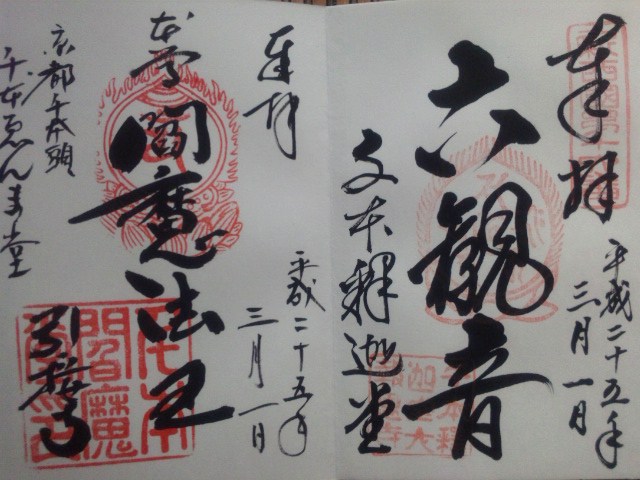 奉拝
平成二十五年
三月一日
六観音
千本釈迦堂
奉拝
平成二十五年
三月一日
本尊
閻魔法王
引接寺
京都千本頭
千本ゑんま堂